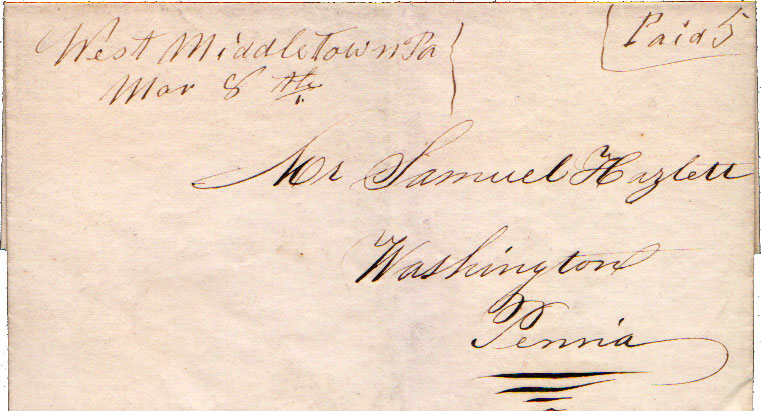 West Middletown Pa
Mar 8th
Paid 5
Mr Samuel Hazlett
Washington
Pennia